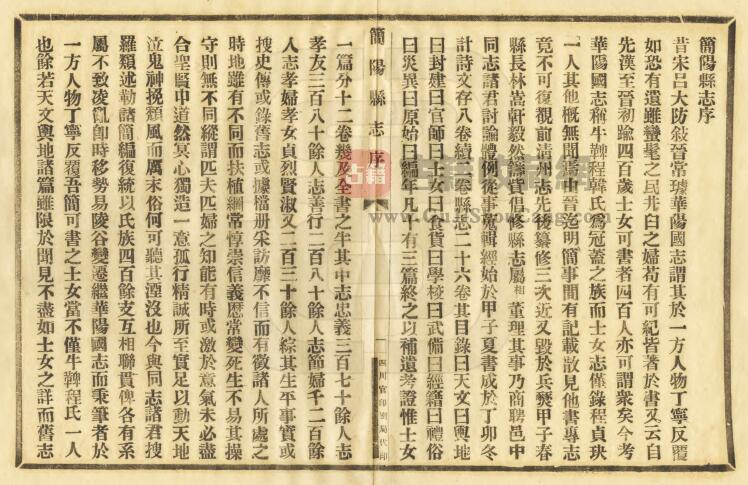 簡陽縣志序
昔宋呂大防敍晉常璩華陽國志謂其於一方人物丁寧反覆
如恐有遺雖蠻髦之民井臼之婦苟有可紀皆著於書又云自
先漢至晉初踰四百歲士女可書者四百人亦可謂衆矣今考
華陽國志稱牛鞞程韓氏爲冠蓋之族而士女志僅錄程貞玦
一人其他概無聞焉由晉迄明簡事間有記載散見他書專志
竟不可復覩前清州志先後纂修三次近又毀於兵燹甲子春
縣長林嵩軒毅然縣賞倡修縣志屬相董理其事乃商聘邑中
同志諸君討論體例從事蒐輯經始於甲子夏書成於丁卯冬
計詩文存八卷續一卷縣志二十六卷其目錄曰天文曰輿地
曰封建曰官師曰士女曰食貨曰學校曰武備曰經籍曰禮俗
曰災異曰原始曰編年凡十有三篇終之以補遺考證惟士女
簡陽縣志序
一
四川官印刷局代印
一篇分十二卷幾及全書之半其中志忠義三百七十餘人志
孝友三百八十餘人志善行二百八十餘人志節婦千二百餘
人志孝婦孝女貞烈賢淑又二百三十餘人綜其生平事實或
搜史傳或錄舊志或據檔册采訪靡不信而有徵諸人所處之
時地雖有不同而扶植綱常惇崇信義歷常變死生不易其操
守則無不同縱謂匹夫匹婦之知能有時或激於意氣未必盡
合聖賢中道然冥心獨造一意孤行精誠所至實足以動天地
泣鬼神挽頽風而厲末俗何可聽其湮沒也今與同志諸君搜
羅類述勒諸簡編復統以氏族四百餘支互相聯貫俾各有系
屬不致凌亂卽時移勢易陵谷變遷繼華陽國志而秉筆者於
一方人物丁寧反覆吾簡可書之士女當不僅牛鞞程氏一人
也餘若天文輿地諸篇雖限於聞見不盡如士女之詳而舊志